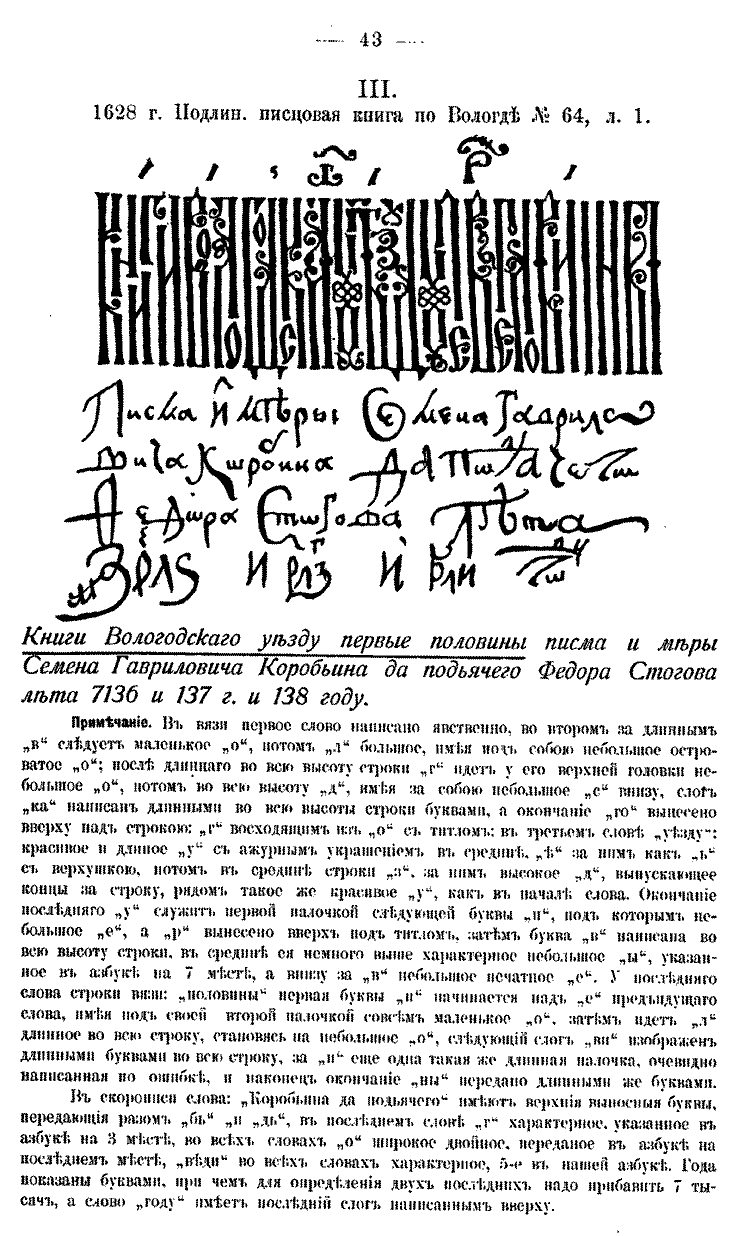 — 43 —
III.
1628 г. Подлин. писцовая книга по Вологдѣ № 64, л. 1.
Писма и мѣры Семена Гаврило
вича Коробина да подьячего
Ѳедора Стогова лѣта
҂зрлѕ и рлз и рли году
Книги Вологодскаго уѣзду первые половины писма и мѣры
Семена Гавриловича Коробьина да подьячего Федора Стогова
лѣта 7136 и 137 г. и 138 году.
Примѣчаніе. Въ вязи первое слово написано явственно, во второмъ за длиннымъ
„в“ слѣдуетъ маленькое „о“, потомъ „л“ большое, имѣя подъ собою небольшое остро-
ватое „о“; послѣ длиннаго во всю высоту строки „г“ идетъ у его верхней головки не-
большое „о“, потомъ во всю высоту „д“, имѣя за собою небольшое „с“ внизу, слогъ
„ка“ написан длинными во всю высоты строки буквами, а окончаніе „го“ вынесено
вверху надъ строкою: „г“ восходящимъ изъ „о“ съ титломъ; въ третьемъ словѣ „уѣзду“:
красивое и длиное „у“ съ ажурнымъ украшеніемъ въ срединѣ, „ѣ“ за нимъ какъ „ь“
съ верхушкою, потомъ въ срединѣ строки „з“, за нимъ высокое „д“, выпускающее
концы за строку, рядомъ такое же красивое „у“, какъ въ началѣ слова. Окончаніе
послѣдняго „у“ служитъ первой палочкой слѣдующей буквы „п“, подъ которымъ не-
большое „е“, а „р“ вынесено вверхъ подъ титломъ, затѣмъ буква „в“ написана во
всю высоту строки, въ срединѣ ея немного выше характерное небольшое „ы“, указан-
ное въ азбукѣ на 7 мѣстѣ, а внизу за „в“ небольшое печатное „е“. У послѣдняго
слова строки вязи: „половины“ первая буквы „п“ начинается надъ „е“ предыдущаго
слова, имѣя подъ своей второй палочкой совсѣмъ маленькое „о“, затѣмъ идетъ „л“
длинное во всю строку, становясь на небольшое „о“, слѣдующій слогъ „ви“ изображенъ
длинными буквами во всю строку, за „и“ еще одна такая же длинная палочка, очевидно
написанная по ошибкѣ, и наконецъ окончаніе „ны“ передано длинными же буквами.
Въ скорописи слова: „Коробьина да подьячего“ имѣютъ верхнія выносныя буквы,
передающія разомъ „бь“ „и „дь“, въ послѣднемъ словѣ „г“ характерное, указанное въ
азбукѣ на 3 мѣстѣ, во всѣхъ словахъ „о“ широкое двойное, переданое въ азбукѣ на
послѣднемъ мѣстѣ, „вѣди“ во всѣхъ словахъ характерное, 5-е въ нашей азбукѣ. Года
показаны буквами, при чемъ для опредѣленія двухъ послѣднихъ надо прибавить 7 ты-
сячъ, а слово „году“ имѣетъ послѣдній слогъ написаннымъ вверху.